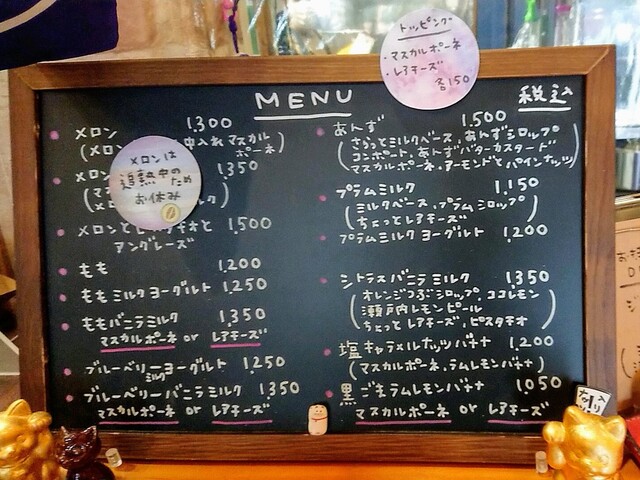 トッピング
・マスカルポーネ
・レアチーズ
各150
MENU
税込
メロン 1,300
(メロン 中入れマスカルポーネ)
メロン 1,350
メロンは
追熟中の
ため
お休み
メロンとピスタチオと 1,500
アングレーズ
もも 1,200
ももミルクヨーグルト 1,250
ももバニラミルク 1,350
マスカルポーネ or レアチーズ
ブルーベリーミルクヨーグルト 1,250
ブルーベリーバニラミルク 1,350
マスカルポーネ or レアチーズ
あんず 1,500
(さらっとミルクベース、あんずシロップ
コンポート、あんずバターカスタード
マスカルポーネ、アーモンドとパインナッツ)
プラムミルク 1,150
(ミルクベース、プラムシロップ
ちょっとレアチーズ)
プラムミルクヨーグルト 1,200
シトラスバニラミルク 1,350
(オレンジつぶシロップ、ココレモン
瀬戸内レモンピール
ちょっとレアチーズ、ピスタチオ)
塩キャラメルナッツバナナ 1,200
(マスカルポーネ、ラムレモンバナナ)
黒ごまラムレモンバナナ 1,050
マスカルポーネ or レアチーズ